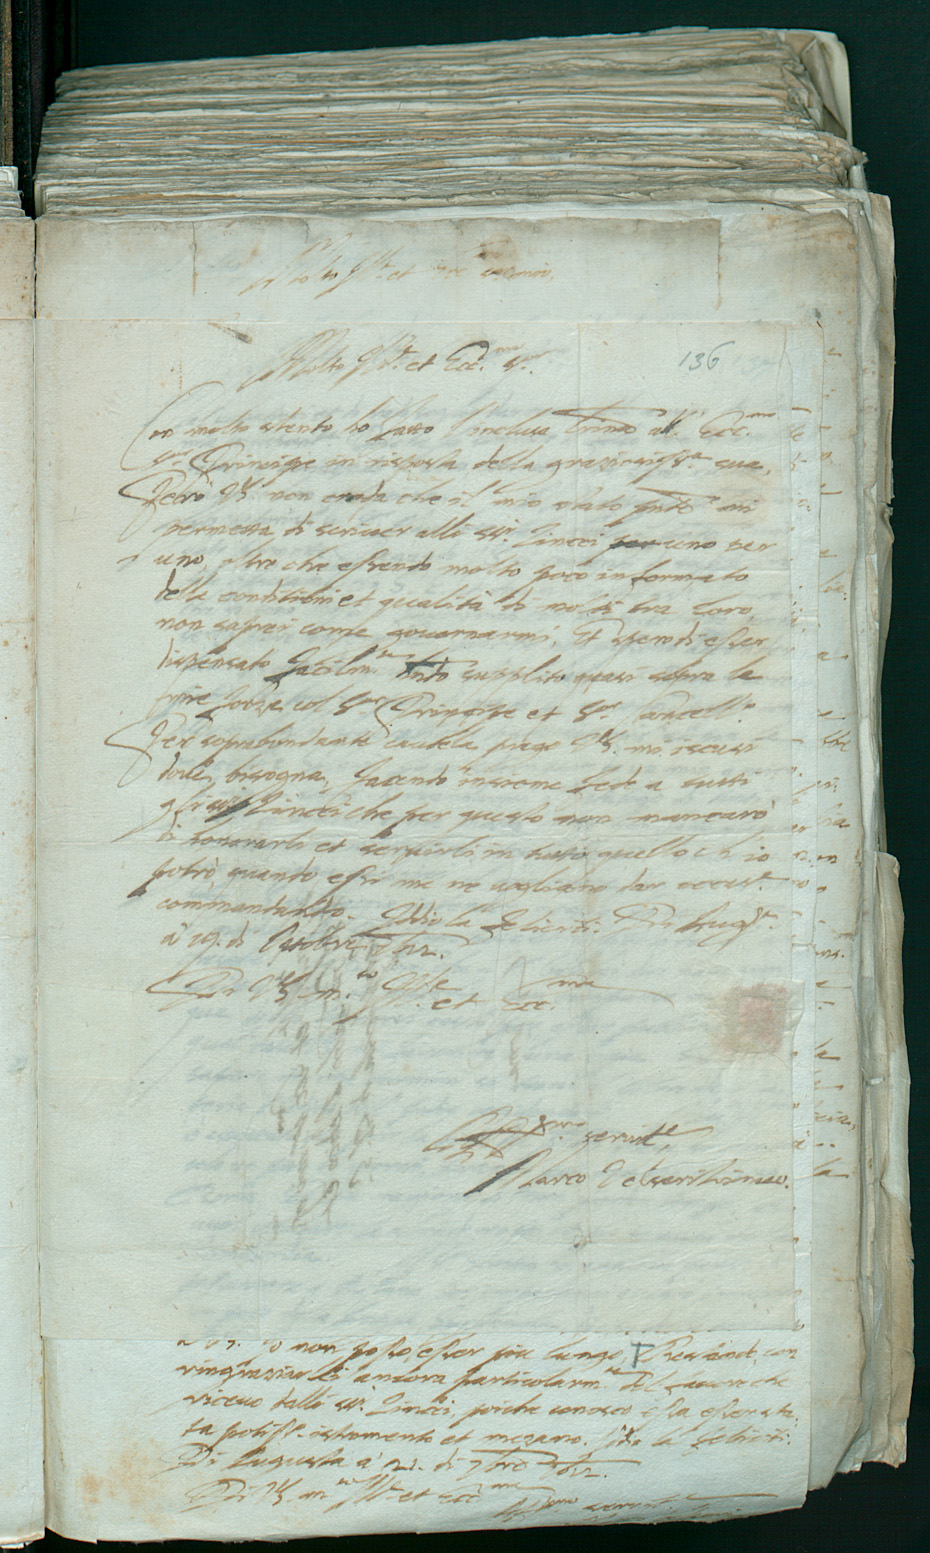 Molto Ill.re et ecc.mo
Molto Ill.re et Ecc.mo S.r
136
Con molto stento ho fatto l'inclusa all' Ecc.mo
S.or Principe in risposta della gratiosiss.a sua,
Però V.S. non creda che il mio stato mi
permetta di scriver alli SS.ri Lincei uno per
uno, oltro che essendo molto poco informato
della conditioni et qualità di molti tra loro,
non saprei come governarmi. Et spero di esser
dispensato facilm.te supplito quasi sopra le
mie forze col S.or Principe et S.or Cancell.o
Per soprabondante cautela prego V.S. mi iscusi
dove bisogna, facendo insieme fede a tutti
gli SS.ri Lincei che per questo non mancarò
di honorarli et servirli in tutto quello ch'io
potrò, quando essi me ne vogliano dar occas.e
commandando. Iddio la feliciti. Di Aug.ta
a' 19. di Ottobre 1612.
Di V.S. m.to Ill.re et Ecc.ma
Aff.mo servit.re
Marco Velseri Linceo.
io non posso esser più lungo,
ringratiar di ancora particolarm.te del favore che
ricevo dalli SS.ri Lincei poiche conosco essa esser sta-
ta potiss.o istromento et mezano. Iddio la feliciti.
Di Augusta a' 21. di 7bre 1612.
Di V.S. m.to Ill.re et Ecc.ma
Aff.mo servit.re